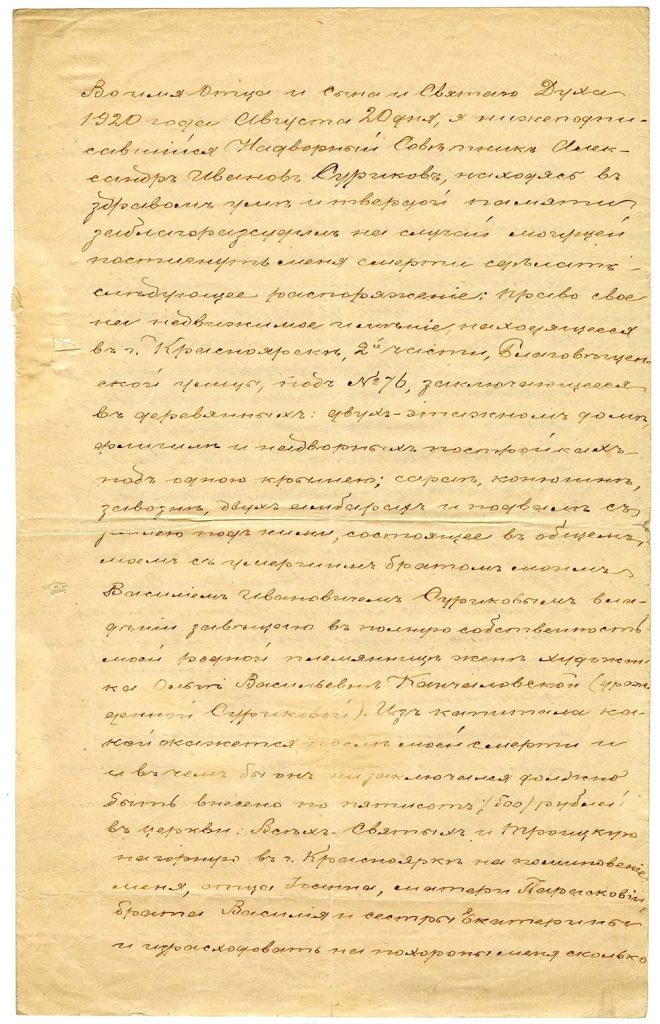 Во имя Отца и сына и Святаго Духа
1920 года Августа 20 дня, я нижеподпи-
савшійся Надворный Совѣтникъ Алек-
сандръ Ивановъ Суриковъ, находясь въ
здравомъ умѣ и твердой памяти
заблагоразсудилъ на случай могущей
постигнуть меня смерти сдѣлать
слѣдующее распоряженіе: право свое
на недвижимое имѣніе, находящееся
въ г. Красноярскѣ, 2й части, Благовѣщен-
ской улицы, подъ № 76, заключающееся
въ деревянныхъ: двухъ-этажномъ домѣ,
флигилѣ и надворныхъ постройкахъ-
подъ одною крышею; сараѣ, конюшнѣ,
завознѣ, двухъ амбарахъ и подвалѣ съ
землею подъ ними, состоящее въ общемъ,
моемъ съ умершимъ братомъ моимъ
Василіемъ Ивановичемъ Суриковымъ вла-
дѣніи завѣщаю въ полную собственность
моей родной племянницѣ женѣ художни-
ка Ольгѣ Васильевнѣ Канчаловской (урож-
денной Суриковой). Изъ капитала ка-
кой окажется послѣ моей смерти и
и въ чемъ бы онъ ни заключался должно
быть внесено по пятисотъ /500/ рублей
въ церкви: Всѣхъ-Святыхъ и Троицкую
нагорную въ г. Красноярскѣ на поминовеніе
меня, отца Іоанна, матери Параскевіи,
брата Василія и сестры Екатерины
и израсходовать на похороны меня сколько